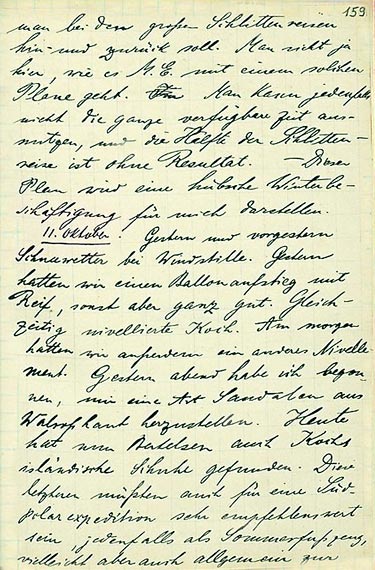 159
man bei den großen Schlittenreisen
hin- und zurück soll. Man sieht ja
hier, wie es M. E. mit einem solchen
Plane geht. Man kann jedenfalls
nicht die ganze verfügbare Zeit aus-
nutzen, und die Hälfte der Schlitten-
reise ist ohne Resultat. — Dieser
Plan wird eine hübsche Winterbe-
schäftigung für mich darstellen.
11. Oktober. Gestern und vorgestern
Schneewetter bei Windstille. Gestern
hatten wir einen Ballonaufstieg mit
Reif, sonst aber ganz gut. Gleich-
zeitig nivellierte Koch. Am morgen
hatten wir ausserdem ein anderes Nivelle-
ment. Gestern abend habe ich begon-
nen, mir eine Art Sandalen aus
Walroßhaut herzustellen. Heute
hat nun Bertelsen auch Kochs
isländische Schuhe gefunden. Diese
letzteren müßten auch für eine Süd-
polarexpedition sehr empfehlenswert
sein, jedenfalls als Sommerfußzeug,
vielleicht aber auch allgemein zur